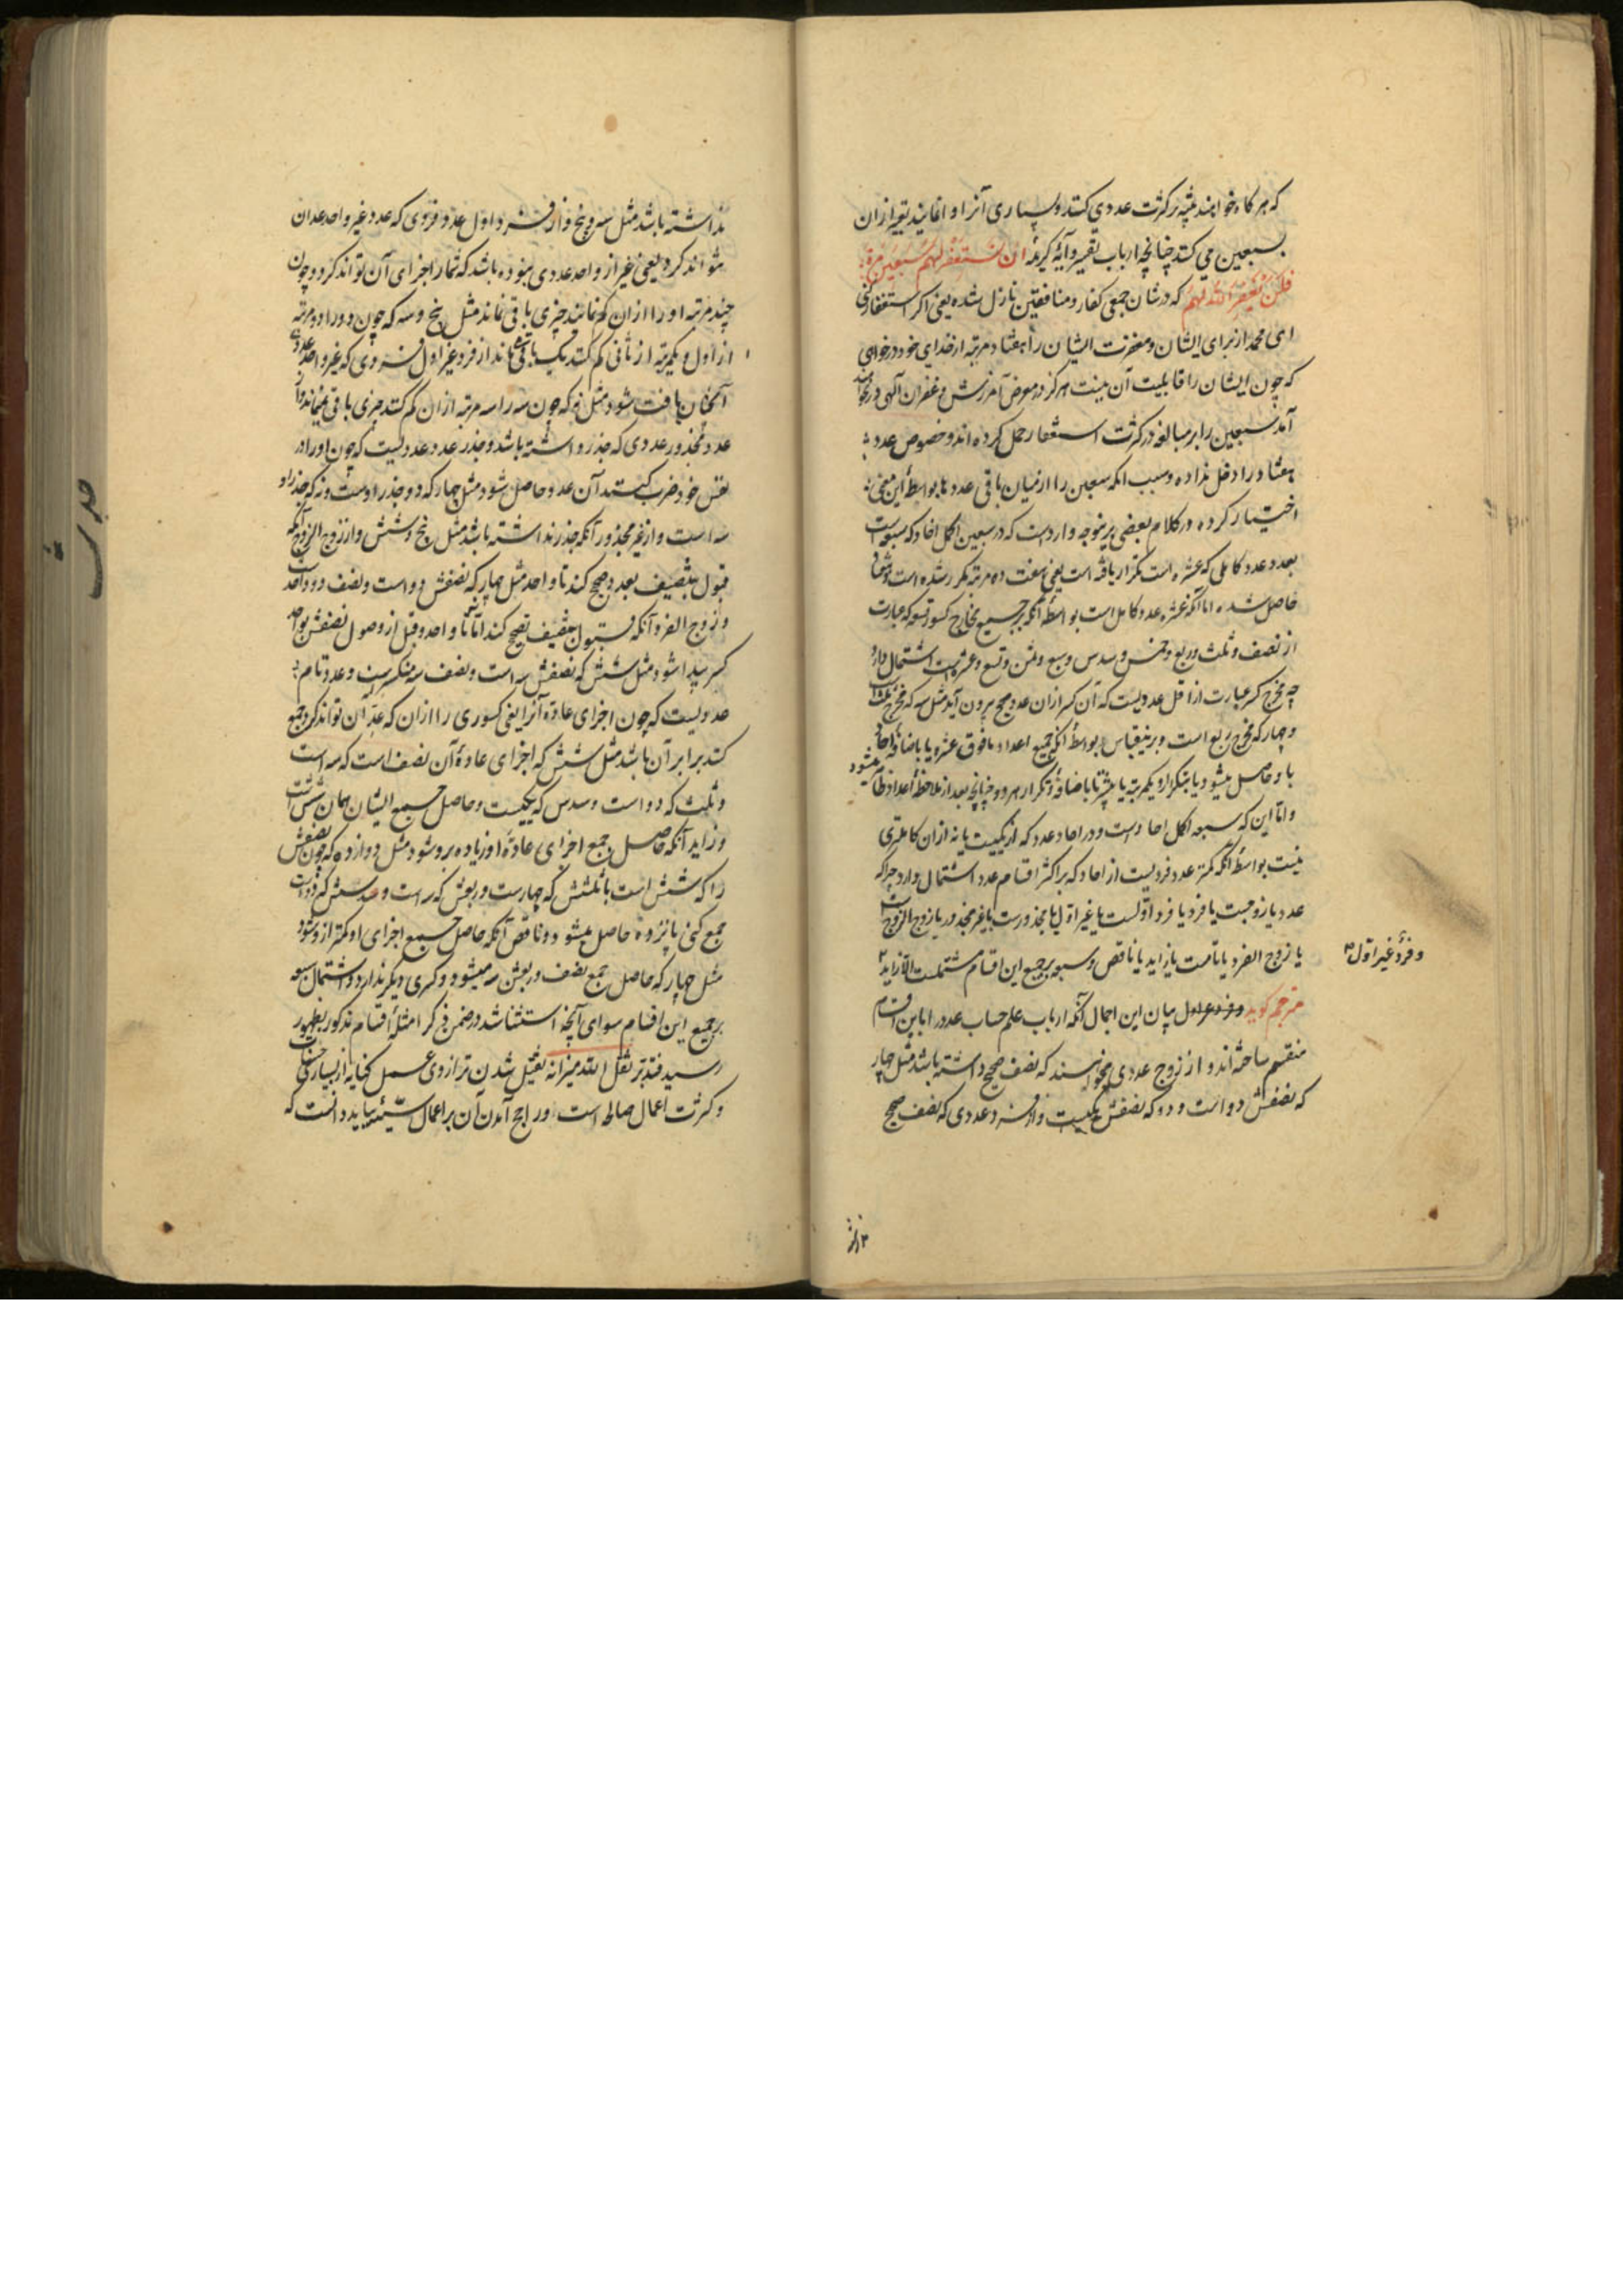 که هر کاه خواهند تنبیه بر کثرت عددی کنند و بسیاری آنرا وا نمایند تعبیر از ان
بسبعین می کنند چنانچه ارباب تفسیر و آیهٔ کریمه ان تستغفر لهم سبعین مرة
فلن یغفر الله لهم که در شان جمعی کفار و منافقین نازل شده یعنی اکر استغفار کنی
ای محمد از برای ایشان و مغفرت ایشان را هفتاد مرتبه از خدای خود درخواهی
که چون ایشان را قابلیت آن نیست هرکز در معرض آمرزش و غفران آلهی در نخواهند
آمد سبعین را بر مبالغه در کثرت استغفار حمل کرده اند و خصوص عدد
هفتاد را دخل نداده و سبب انکه سبعین را از میان باقی عددها بواسطهٔ این معنی
اختیار کرده در کلام بعضی برینوجه وارد است که در سبعین اکمل احاد که سبعه است
بعدد عدد کاملی که عشره است تکرار یافته است یعنی هفت ده مرتبه مکرر شده است و هفتاد
حاصل شده اما آنکه عشره عدد کامل است بواسطهٔ انکه بر جمیع مخارج کسور تسعه که عبارت
از نصف و ثلث و ربع و خمس و سدس و سبع و ثمن و تسع و عشر است اشتمال دارد
چه مخرج کسر عبارت از اقل عددیست که آن کسر ازان عدد صحیح برون آید مثل سه که مخرج ثلث است
و چهار که مخرج ربع است و برینقیاس بواسطهٔ انکه جمیع اعداد مافوق عشره یا باضافهٔ احاد
با و حاصل میشود یا بتکرار او یکمرتبه یا بیشتر یا باضافه و تکرار هر دو چنانچه بعد از ملاحظهٔ اعداد ظاهر میشود
و اما این که سبعه اکمل احاد است و در احاد عدد که از یکیست یا نه ازان کاملتری
نیست بواسطهٔ انکه کمتر عدد فردیست از احاد که بر اکثر اقسام عدد اشتمال دارد چرا که
عدد یا زوجست یا فرد یا فرد اولست یا غیر اول یا مجذورست یا غیر مجذور یا زوج الزوج است
یا زوج الفرد یا تامست یا زاید یا ناقص و سبعه بر جمیع این اقسام مشتملست الا زاید
و فرد غیر اول
مترجم کوید بیان این اجمال آنکه ارباب علم حساب عدد را باین اقسام
منقسم ساخته اند و از زوج عددی میخواهند که نصف صحیح داشته باشد مثل چهار
که نصفش دو است و دو که نصفش یکیست و از فرد عددی که نصف صحیح
نداشته باشد مثل سه و پنج و از فرد اول عدد فردی که عدد غیر واحد عد ان
نتواند کرد یعنی غیر از واحد عددی نبوده باشد که شمار اجزای آن تواند کرد و چون
چند مرتبه او را ازان کم نمایند چیزی باقی نماند مثل پنج و سه که چون دو را دو مرتبه
از اول و یکمرتبه از ثانی کم کنند یک باقی ماند از فرد غیر اول فردی که غیر واحد عددی
آنچنان یافت شود مثل نه که چون سه را سه مرتبه ازان کم کنند چیزی باقی نمیماند و از
عدد مجذور عددی که جذر داشته باشد و جذر عدد عددیست که چون او را در
نفس خود ضرب کنند آن عدد حاصل شود مثل چهار که دو جذر اوست و نه که جذر او
سه است و از غیر مجذور آنکه جذر نداشته باشد مثل پنج و شش و از زوج الزوج آنکه
قبول تنصیف بعدد صحیح کند تا واحد مثل چهار که نصفش دو است و نصف دو واحد است
و زوج الفرد آنکه قبول تنصیف صحیح کند اما نه تا واحد و قبل از وصول نصفش بواحد
کسر پیدا شود مثل شش که نصفش سه است و نصف سه منکسر است و عدد تام
عددیست که چون اجزای عادهٔ آنرا یعنی کسوری را ازان که عد آن تواند کرد جمع
کنند برابر آن باشد مثل شش که اجزای عادهٔ آن نصف است که سه است
و ثلث که دو است و سدس که یکیست و حاصل جمیع ایشان همان شش است
و زاید آنکه حاصل جمع اجزای عادهٔ او زیاده برو شود مثل دوازده که چون نصفش
را که شش است با ثلثش که چهارست و ربعش که سه است و سدسش که دو است
جمع کنی پانزده حاصل میشود و ناقص آنکه حاصل جمیع اجزای او کمتر از و شود
مثل چهار که حاصل جمع نصف و ربعش سه میشود و کسری دیکر ندارد و اشتمال سبعه
بر جمیع این اقسام سوای آنچه استثنا شد در ضمن ذکر امثلهٔ اقسام مذکور بظهور
رسید فتدبر ثقل الله میزانه ثقیل شدن ترازوی عمل کنایه از بسیاری حسنات
و کثرت اعمال صالحه است و راجح آمدن آن بر اعمال سیئه بباید دانست که